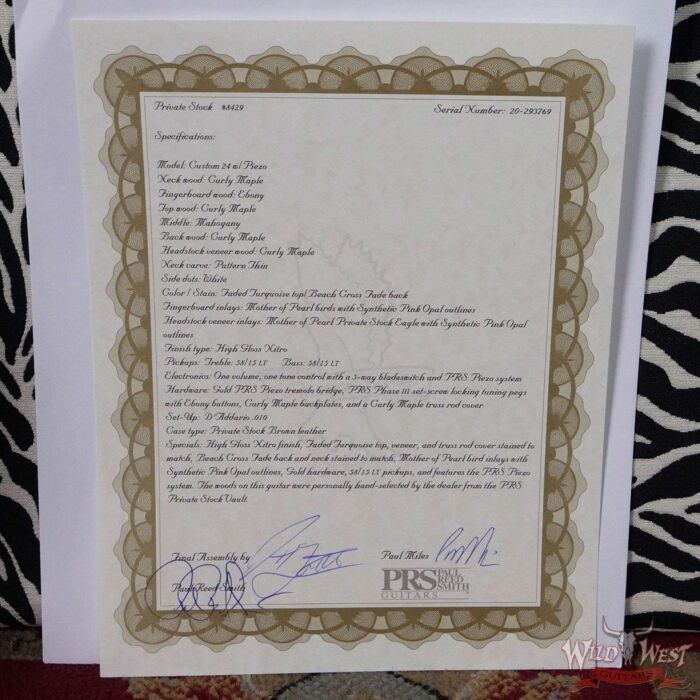 Private Stock #8429
Serial Number: 20-293769
Specifications:
Model: Custom 24 w/ Piezo
Neck wood: Curly Maple
Fingerboard wood: Ebony
Top wood: Curly Maple
Middle: Mahogany
Back wood: Curly Maple
Headstock veneer wood: Curly Maple
Neck carve: Pattern Thin
Side dots: White
Color / Stain: Faded Turquoise top/Beach Cross Fade back
Fingerboard inlays: Mother of Pearl birds with Synthetic Pink Opal outlines
Headstock veneer inlays: Mother of Pearl Private Stock Eagle with Synthetic Pink Opal
outlines
Finish type: High Gloss Nitro
Pickups: Treble: 58/15 LT Bass: 58/15 LT
Electronics: One volume, one tone control with a 5-way bladeswitch and PRS Piezo system
Hardware: Gold PRS Piezo tremolo bridge, PRS Phase III set-screw locking tuning pegs
with Ebony buttons, Curly Maple backplates, and a Curly Maple truss rod cover
Set-Up: D'Addario .010
Case type: Private Stock Brown leather
Specials: High Gloss Nitro finish, Faded Turquoise top, veneer, and truss rod cover stained to
match, Beach Cross Fade back and neck stained to match, Mother of Pearl bird inlays with
Synthetic Pink Opal outlines, Gold hardware, 58/15 LT pickups, and features the PRS Piezo
system. The woods on this guitar were personally hand-selected by the dealer from the PRS
Private Stock Vault.
Final Assembly by
Paul Miles
Paul Reed Smith
PRS PAUL
REED
SMITH
GUITARS
WILD WEST
GUITARS